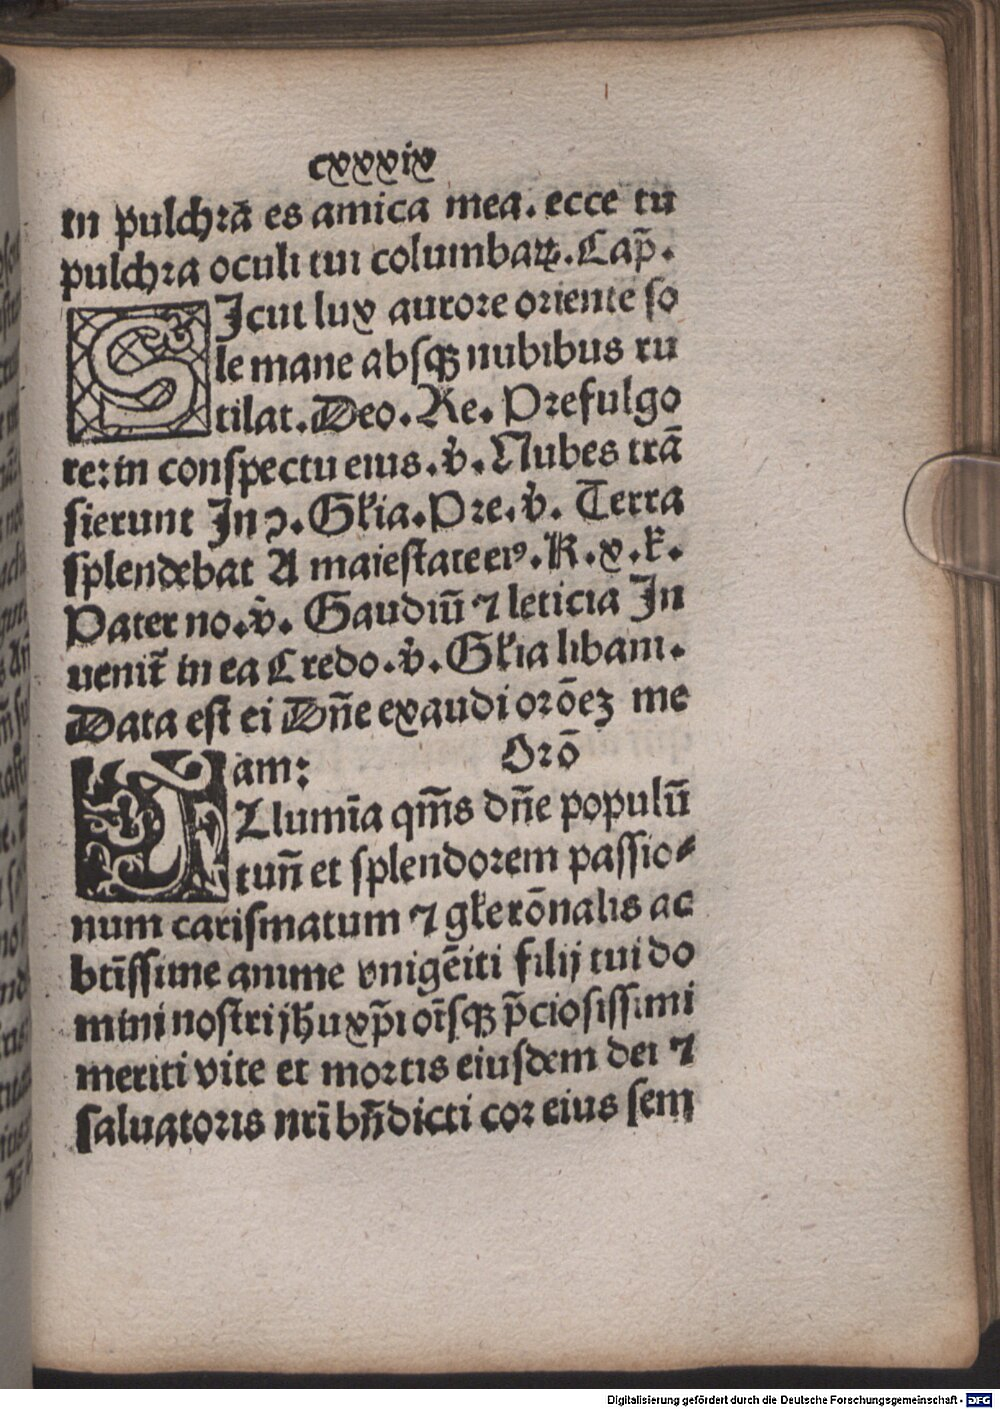 cxxxix
tu pulchrā es amica mea. ecce tu
pulchra oculi tui columbaꝝ. Cap̄.
SIcut lux aurore oriente so
le mane absqꝫ nubibus ru
tilat. Deo. Re. Prefulgo
re: in conspectu eius. v̾. Nubes trā
sierunt Jnꝛ. Gl̄ia. Pre. v̾. Terra
splendebat A maiestate eiꝰ. K. x. k̄.
Pater no. v̾. Gaudiū ⁊ leticia In
uenit̄ in ea Credo. v̾. Gl̄ia libani.
Data est ei Dn̄e exaudi orōeꝫ me
am: Orō
Illumīa qm̄s dn̄e populū
tuū et splendorem passio⸗
num carismatum ⁊ gl̄e rōnalis ac
btīssime anime vnigēiti filij tui do
mini nostri jh̄u xp̄i oīsqꝫ p̄ciosissimi
meriti vite et mortis eiusdem dei ⁊
saluatoris nrī bn̄dicti cor eius sem
Digitalisierung gefördert durch die Deutsche Forschungsgemeinschaft - DFG